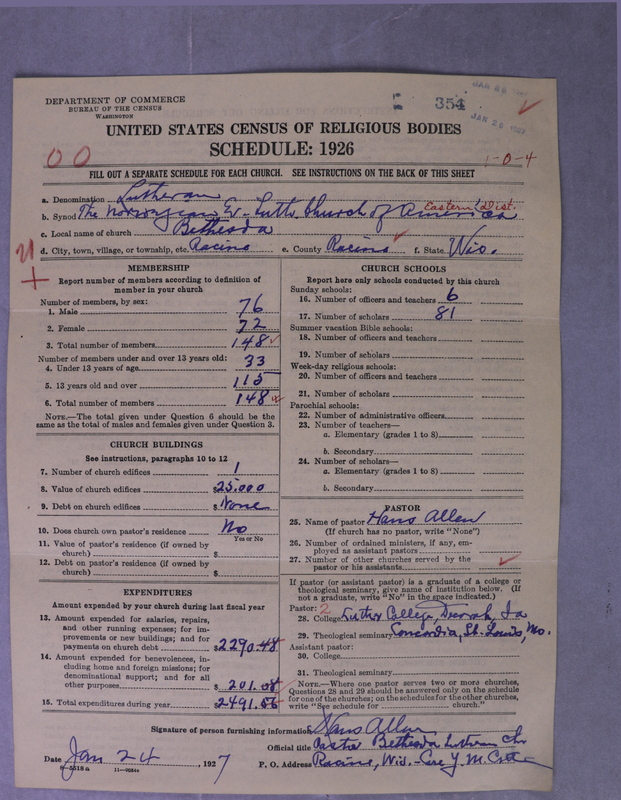 DEPARTMENT OF COMMERCE
BUREAU OF THE CENSUS
WASHINGTON
354
JAN 26 1927
UNITED STATES CENSUS OF RELIGIOUS BODIES
SCHEDULE: 1926
00
1-0-4
FILL OUT A SEPARATE SCHEDULE FOR EACH CHURCH. SEE INSTRUCTIONS ON THE BACK OF THIS SHEET
a. Denomination Lutheran
b. Synod The Norwegian Ev. Luth. Church of America Eastern Dist.
c. Local name of church Bethesda
d. City, town, village, or township, etc. Racine e. County Racine f. State Wis.
MEMBERSHIP
Report number of members according to definition of
member in your church
Number of members, by sex:
1. Male 76
2. Female 72
3. Total number of members 148
Number of members under and over 13 years old:
4. Under 13 years of age 33
5. 13 years old and over 115
6. Total number of members 148
NOTE.—The total given under Question 6 should be the
same as the total of males and females given under Question 3.
CHURCH BUILDINGS
See instructions, paragraphs 10 to 12
7. Number of church edifices 1
8. Value of church edifices $25.000
9. Debt on church edifices $None
10. Does church own pastor's residence No
Yes or No
11. Value of pastor's residence (if owned by
church) $
12. Debt on pastor's residence (if owned by
church) $
EXPENDITURES
Amount expended by your church during last fiscal year
13. Amount expended for salaries, repairs,
and other running expenses; for im-
provements or new buildings; and for
payments on church debt $2290.48
14. Amount expended for benevolences, in-
cluding home and foreign missions; for
denominational support; and for all
other purposes $201.08
15. Total expenditures during year $2491.56
CHURCH SCHOOLS
Report here only schools conducted by this church
Sunday schools:
16. Number of officers and teachers 6
17. Number of scholars 81
Summer vacation Bible schools:
18. Number of officers and teachers
19. Number of scholars
Week-day religious schools:
20. Number of officers and teachers
21. Number of scholars
Parochial schools:
22. Number of administrative officers
23. Number of teachers—
a. Elementary (grades 1 to 8)
b. Secondary
24. Number of scholars—
a. Elementary (grades 1 to 8)
b. Secondary
PASTOR
25. Name of pastor Hans Allen
(If church has no pastor, write "None")
26. Number of ordained ministers, if any, em-
ployed as assistant pastors
27. Number of other churches served by the
pastor or his assistants
If pastor (or assistant pastor) is a graduate of a college or
theological seminary, give name of institution below. (If
not a graduate, write "No" in the space indicated.)
Pastor: 2
28. College Luther College, Decorah, Ia
29. Theological seminary Concordia, St. Louis, Mo.
Assistant pastor:
30. College
31. Theological seminary
NOTE.—Where one pastor serves two or more churches,
Questions 28 and 29 should be answered only on the schedule
for one of the churches; on the schedules for the other churches,
write "See schedule for church."
Signature of person furnishing information Hans Allen
Official title Pastor Bethesda Lutheran Ch.
Date Jan 24, 1927 P. O. Address Racine, Wis. - Care Y. M. C. A.
8-5518a 11-9064c